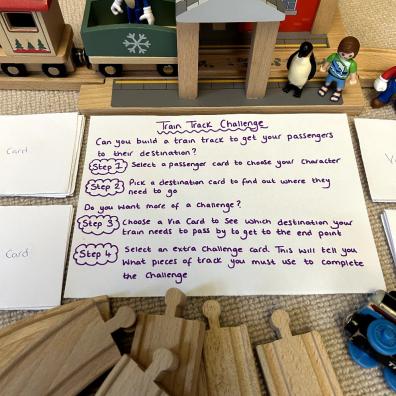 Train Track Challenge
Can you build a train track to get your passengers
to their destination?
Step 1 Select a passenger card to choose your character
Step 2 Pick a destination card to find out where they
need to go
Do you want more of a challenge?
Step 3 Choose a Via Card to see which destination your
train needs to pass by to get to the end point
Step 4 Select an extra Challenge card. This will tell you
what pieces of track you must use to complete
the Challenge
Card
Card